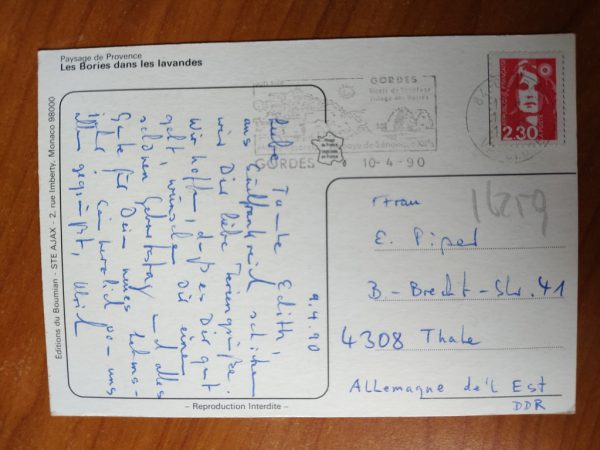 Paysage de Provence
Les Bories dans les lavandes
Editions du Boumian - STE AJAX - 2, rue Imberty, Monaco 98000
9.4.90
Liebe Tante Edith,
aus Südfrankreich schicken
wir Dir liebe Feriengrüße.
Wir hoffen, daß es Dir gut
geht, wünschen Dir einen
schönen Geburtstag und alles
Gute für Dein neues Lebens-
jahr! Sei herzlich von uns
allen gegrüßt,
GORDES
Village des Bories
GORDES
10-4-90
2,30
Frau
E. Piper
B.-Brecht-Str. 41
4308 Thale
Allemagne de l'Est
DDR
- Reproduction Interdite -